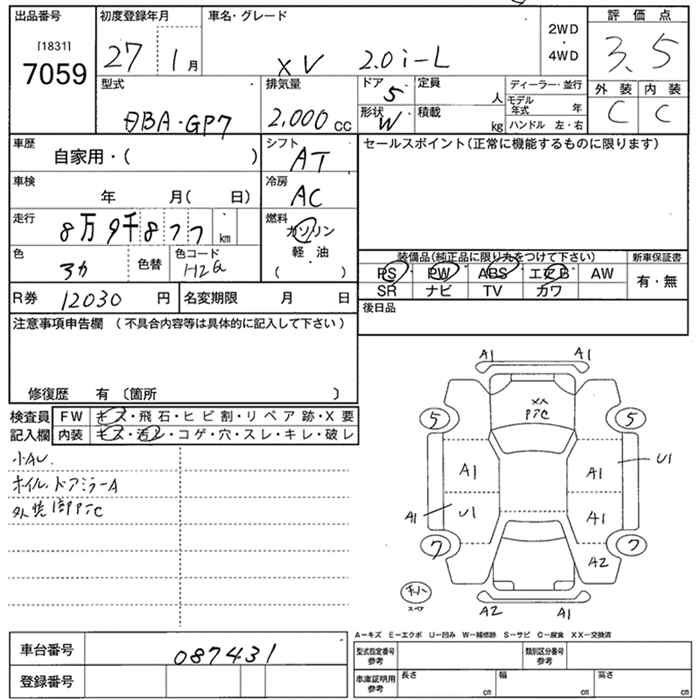 出品番号 初度登録年月 車名・グレード 2WD ・ 4WD 評価点
[1831]
7059 27 1月 XV 2.0i-L 3.5
型式 排気量 ドア 5 定員 人 ディーラー・並行 外装 内装
DBA・GP7 2,000cc 形状 W 積載 kg モデル年式 年 C C
ハンドル 左・右
車歴 自家用・( ) シフト AT セールスポイント(正常に機能するものに限ります)
車検 年 月( 日) 冷房 AC
走行 8万9千877km 燃料 ガソリン
軽・油
( )
色 色替 色コード H2Q 装備品(純正品に限り丸をつけて下さい) 新車保証書
PS PW ABS エアB AW 有・無
SR ナビ TV カワ
R券 12030円 名変期限 月 日 後日品
注意事項申告欄 (不具合内容等は具体的に記入して下さい)
修復歴 有 〔箇所 〕
検査員 FW キズ・飛石・ヒビ割・リペア跡・X要
記入欄 内装 キズ・汚レ・コゲ・穴・スレ・キレ・破レ
小AU.
ホイル、ドアミラーA
A1 A1
XX
5 5
A1 A1 U1
A1 U1 A1
7 7
A2
スペア
A2 A1
A−キズ E−エクボ U−凹み W−補修跡 S−サビ C−腐食 XX−交換済
車台番号 087431 型式指定番号 参考 類別区分番号 参考
登録番号 車庫証明用 参考 長さ cm 幅 cm 高さ cm